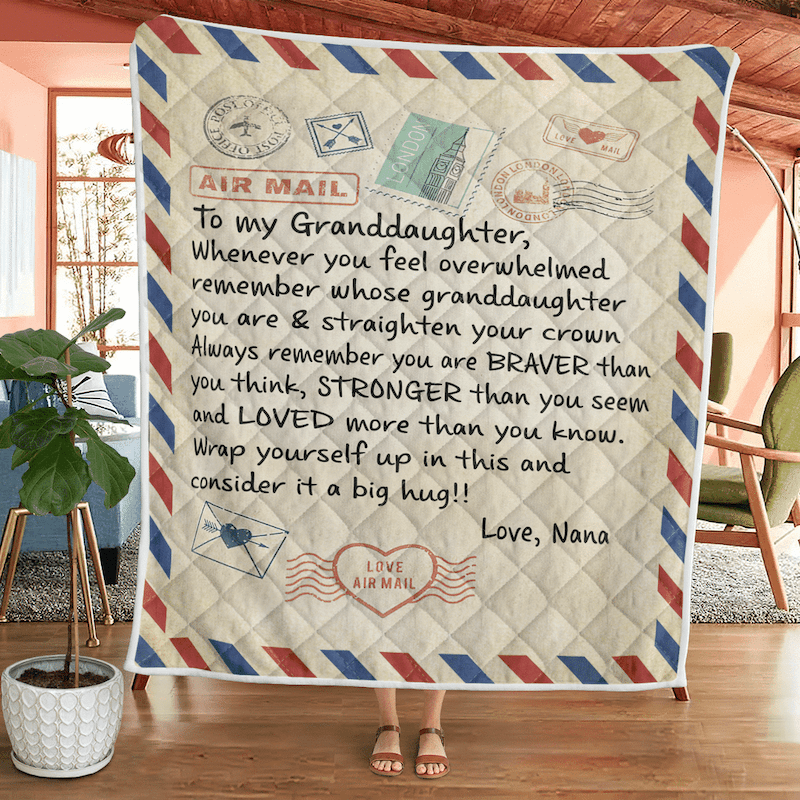 POST OFFICE
POST OFFICE
LONDON
LOVE MAIL
LONDON LONDON LONDON
LONDON
AIR MAIL
To my Granddaughter,
Whenever you feel overwhelmed
remember whose granddaughter
you are & straighten your crown
Always remember you are BRAVER than
you think, STRONGER than you seem
and LOVED more than you know.
Wrap yourself up in this and
consider it a big hug!!
Love, Nana
LOVE
AIR MAIL